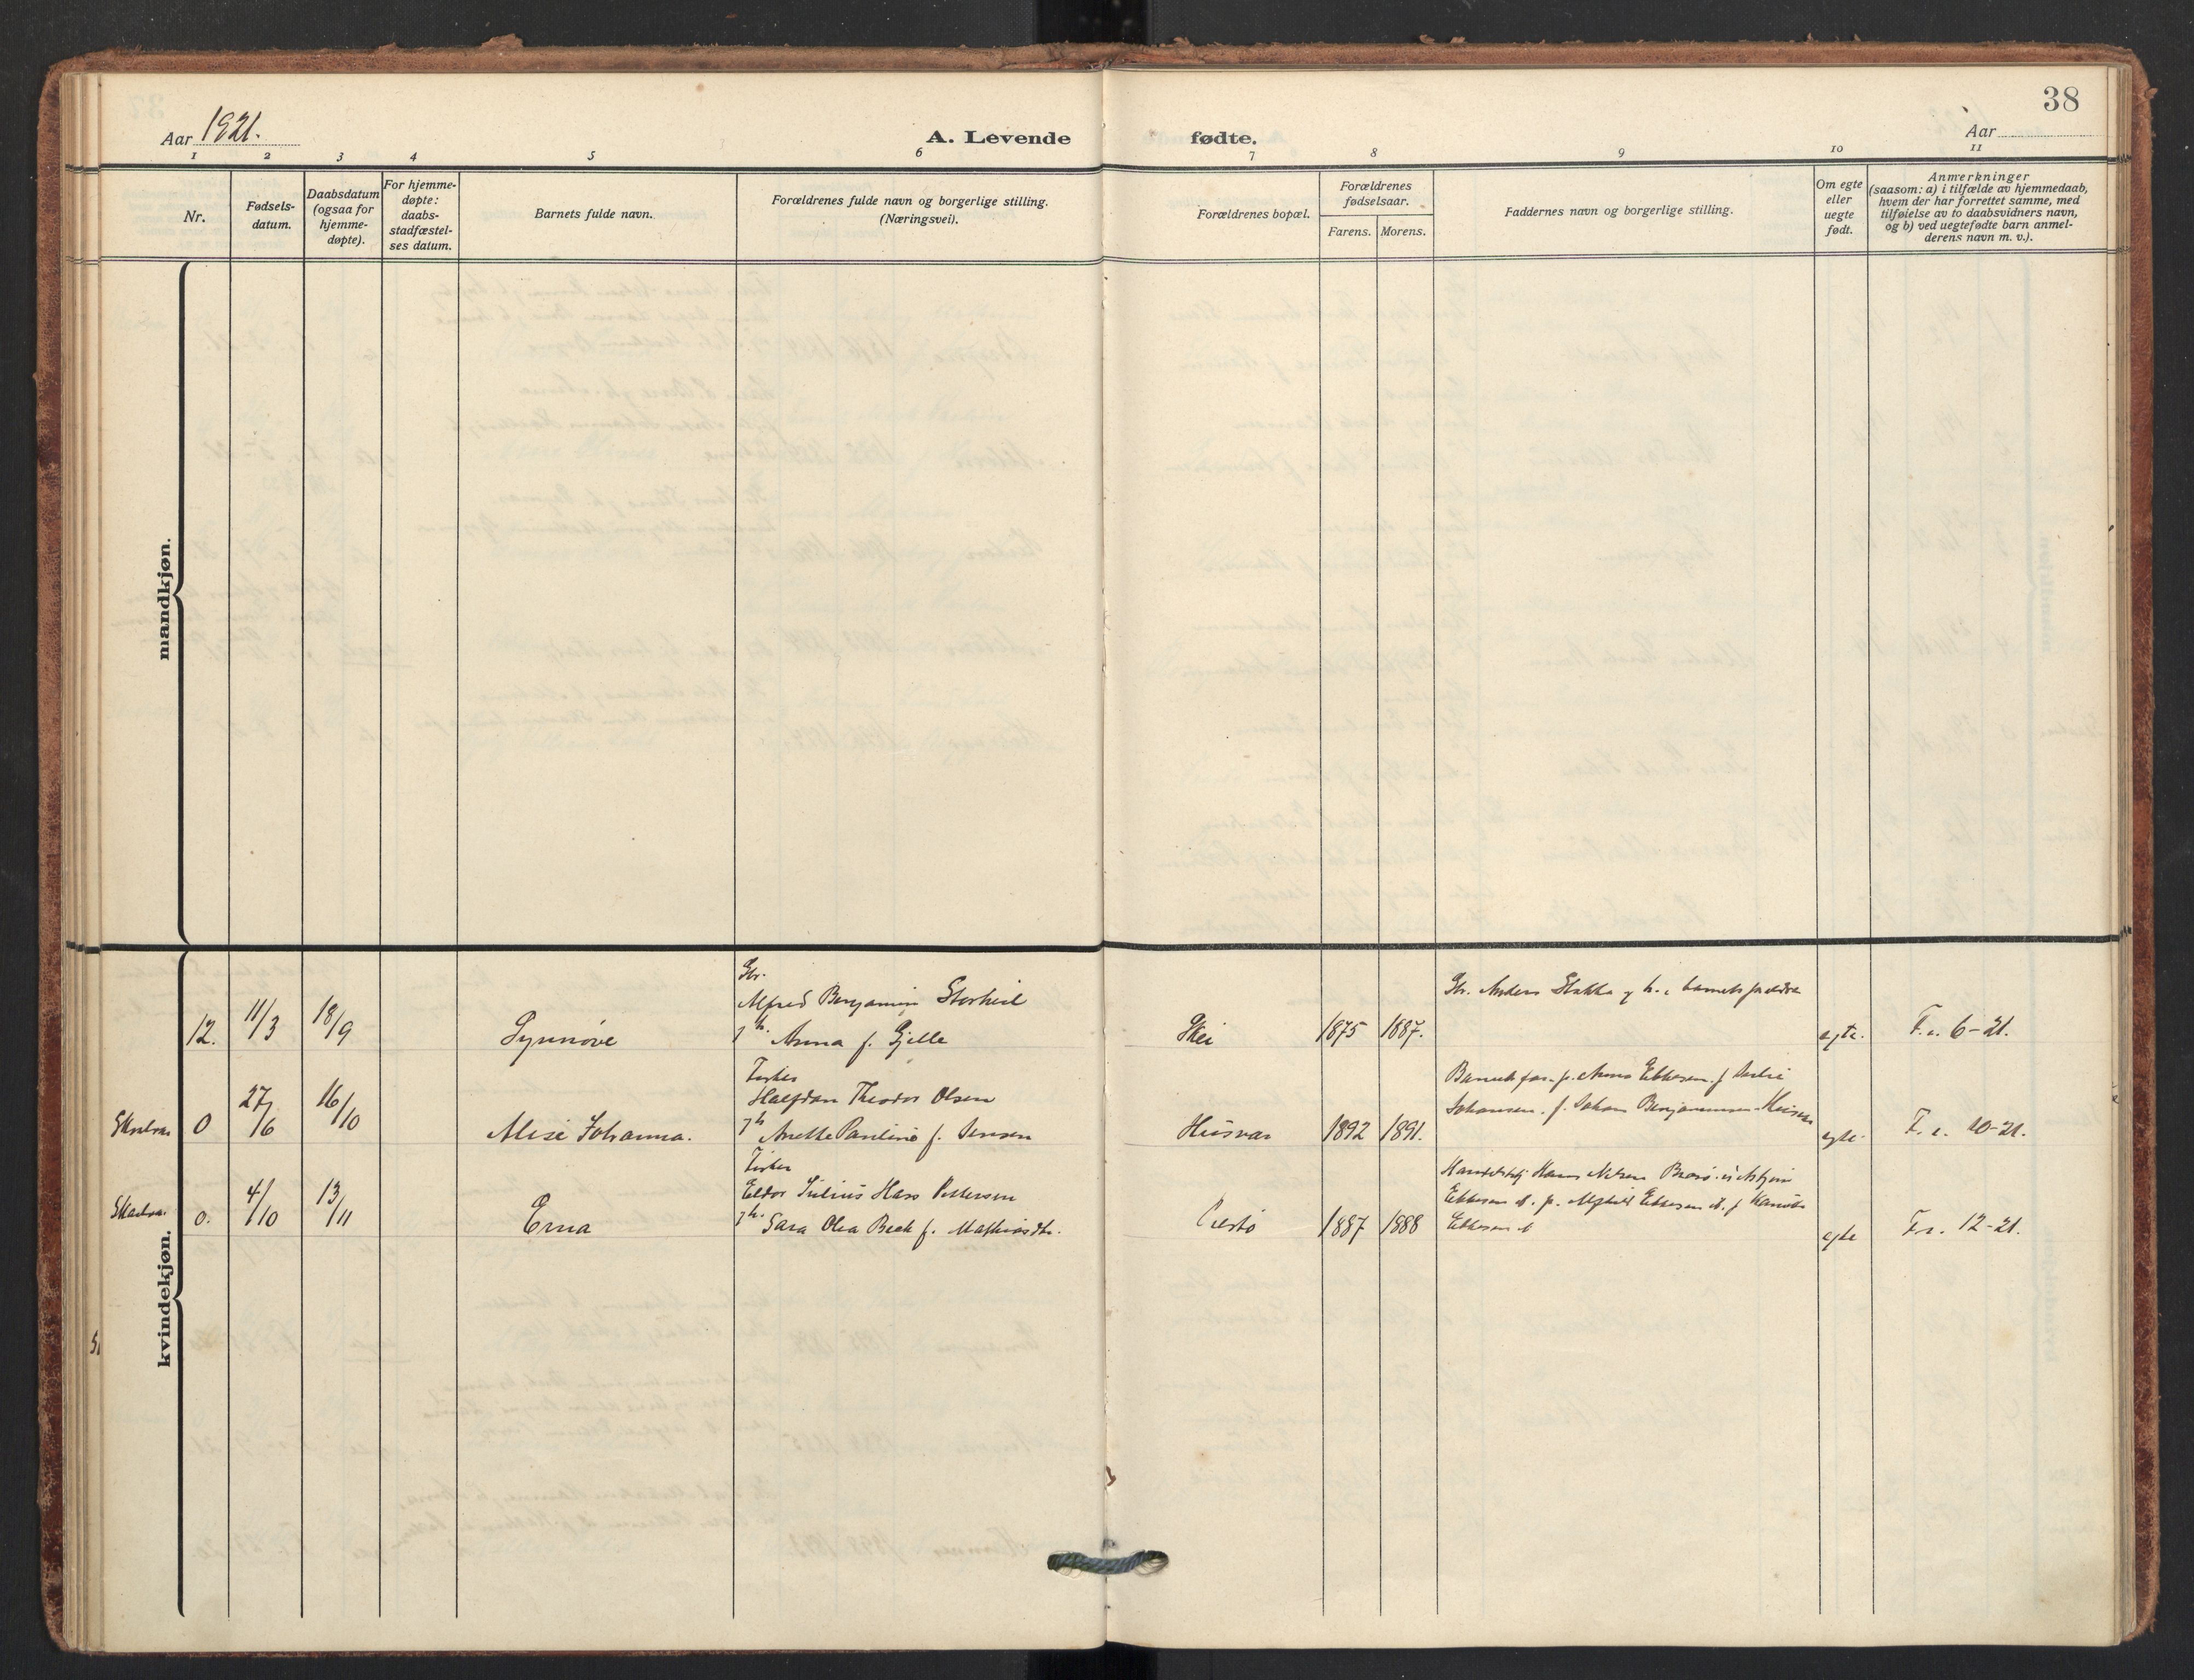 38
Aar 1921.
A. Levende fødte.
Aar
1 2 3 4 5 6 7 8 9 10 11
Nr.
Fødsels-
datum.
Daabsdatum
(ogsaa for
hjemme-
døpte).
For hjemme-
døpte:
daabs-
stadfæstel-
ses datum.
Barnets fulde navn.
Forældrenes fulde navn og borgerlige stilling.
(Næringsvei).
Forældrenes bopæl.
Forældrenes
fødselsaar.
Farens. Morens.
Faddernes navn og borgerlige stilling.
Om egte
eller
uegte
født.
Anmerkninger
(saasom: a) i tilfælde av hjemmedaab,
hvem der har forrettet samme, med
tilføielse av to daabsvidners navn,
og b) ved uegtefødte barn anmel-
derens navn m. v.).
mandkjøn.
kvindekjøn.
12. 11/3 18/9 Synnøve
Gbr.
Alfred Benjamin Storheil
Anna f. Gjelle
1875 1887.
Gbr. Anders
egte. 6-21.
0 27/6 16/10 Alise Johanna.
Fisker
Halfdan Theodor Olsen
Anette Pauline f. Jensen
Husvær 1892 1891.
Johansen. f. Johan Benjaminsen
egte. 10-21.
0. 4/10 13/11 Erna
Fisker
Eldor Julius Hass Pettersen
Sara Olea Beck f. Mathiasdtr.
1887 1888
Hans Nilsen
Ebbesen
Ebbesen
egte 12-21.